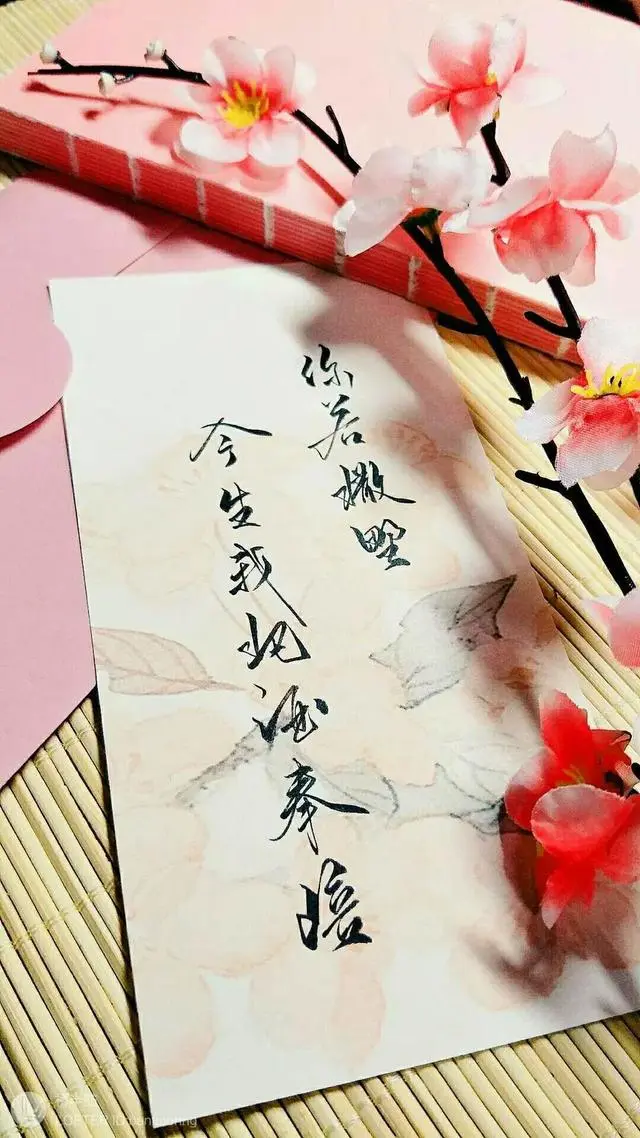 你若撒野
今生我把酒奉陪
LOFTER ID